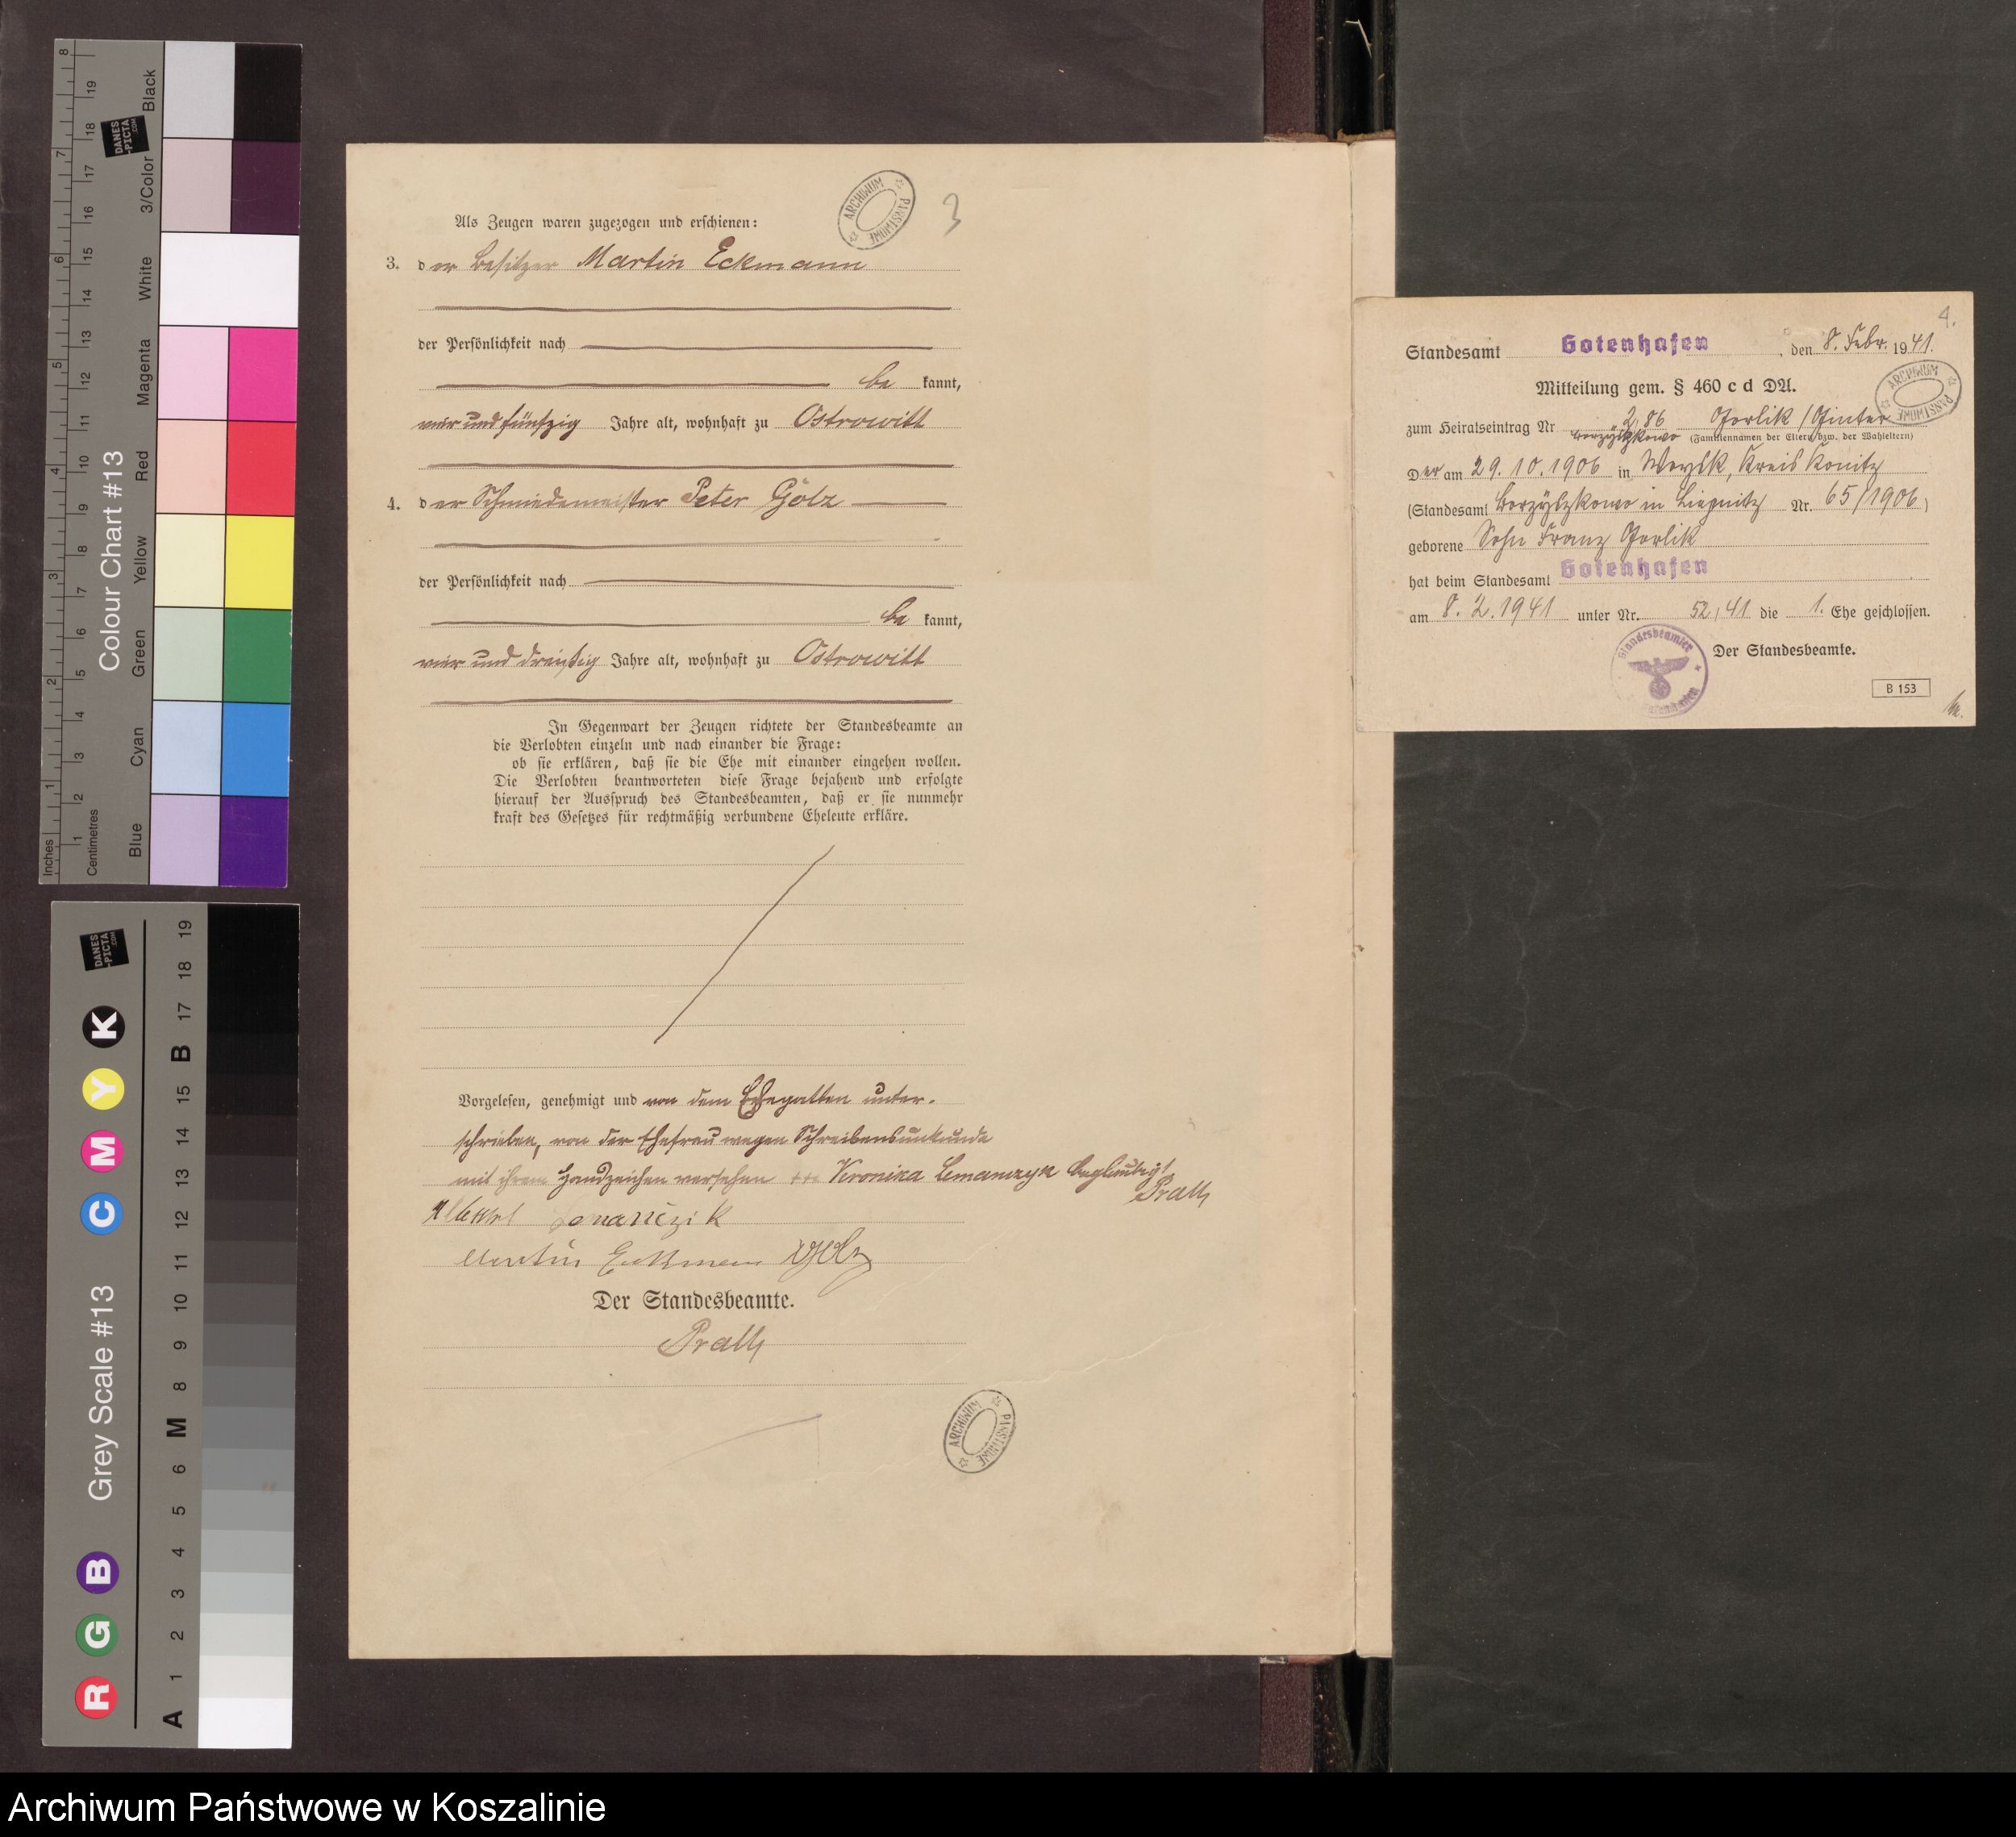 Als Zeugen waren zugezogen und erschienen:
3
3. der Besitzer Martin Eckmann
der Persönlichkeit nach
be kannt,
vier und fünfzig Jahre alt, wohnhaft zu Ostrowitt
4. der Schmiedemeister Peter Götz
der Persönlichkeit nach
be kannt,
vier und dreißig Jahre alt, wohnhaft zu Ostrowitt
In Gegenwart der Zeugen richtete der Standesbeamte an
die Verlobten einzeln und nach einander die Frage:
ob sie erklären, daß sie die Ehe mit einander eingehen wollen.
Die Verlobten beantworteten diese Frage bejahend und erfolgte
hierauf der Ausspruch des Standesbeamten, daß er sie nunmehr
kraft des Gesetzes für rechtmäßig verbundene Eheleute erkläre.
Vorgelesen, genehmigt und von dem Ehegatten unter-
schrieben, von der Ehefrau wegen Schreibensunkunde
mit ihrem Handzeichen versehen +++ Veronika Lemanczyk beglaubigt
Prall
Lemanczik
Martin Eckmann
Der Standesbeamte.
Prall
ARCHIWUM PAŃSTWOWE
ARCHIWUM PAŃSTWOWE
4.
Standesamt Gotenhafen, den 8. Febr. 1941.
Mitteilung gem. § 460 c d DA.
zum Heiratseintrag Nr 2, 86 Gorlik / Ginter
Borzyszkowo (Familiennamen der Eltern bzw. der Wahleltern)
Der am 29.10.1906 in Woysk, Kreis Konitz
(Standesamt Borzyszkowo in Liepnitz Nr. 65/1906)
geborene Sohn Franz Gorlik
hat beim Standesamt Gotenhafen
am 8.2.1941 unter Nr. 52/41 die 1. Ehe geschlossen.
Der Standesbeamte.
Standesbeamter
B 153
ARCHIWUM PAŃSTWOWE
Inches
1 2 3 4 5 6 7 8
Centimetres
1 2 3 4 5 6 7 8 9 10 11 12 13 14 15 16 17 18 19
Colour Chart #13
Blue Cyan Green Yellow Red Magenta White 3/Color Black
DANES-PICTA.COM
Grey Scale #13
R G B C M Y K
A 1 2 3 4 5 6 M 8 9 10 11 12 13 14 15 B 17 18 19
DANES-PICTA.COM
Archiwum Państwowe w Koszalinie